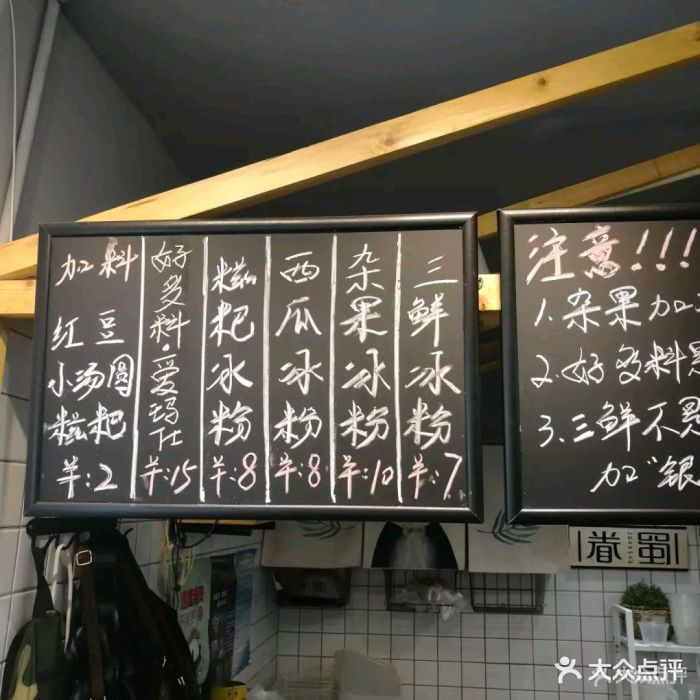 加料
红豆
小汤圆
糍粑
羊:2
好多料·爱玛仕
羊:15
糍粑冰粉
羊:8
西瓜冰粉
羊:8
杂果冰粉
羊:10
三鲜冰粉
羊:7
注意!!!
1.杂果加
2.好多料
3.三鲜不是
加"银
眷蜀
大众点评